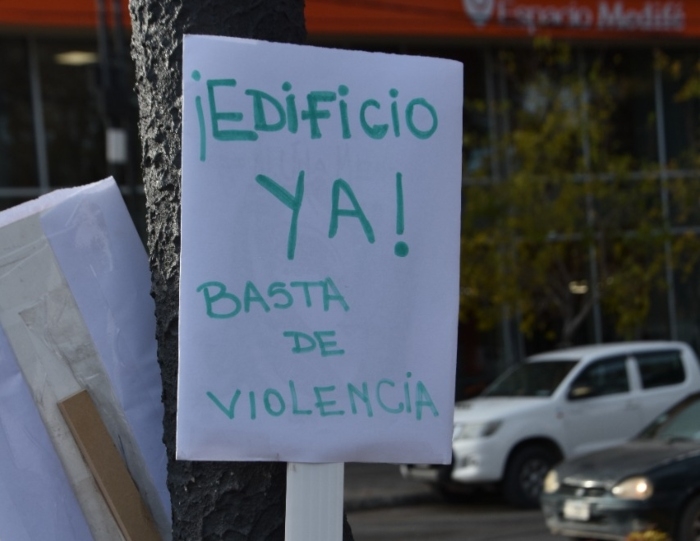 Espacio Medifé
¡EDiFiCiO
YA!
BASTA
DE
VIOLENCiA